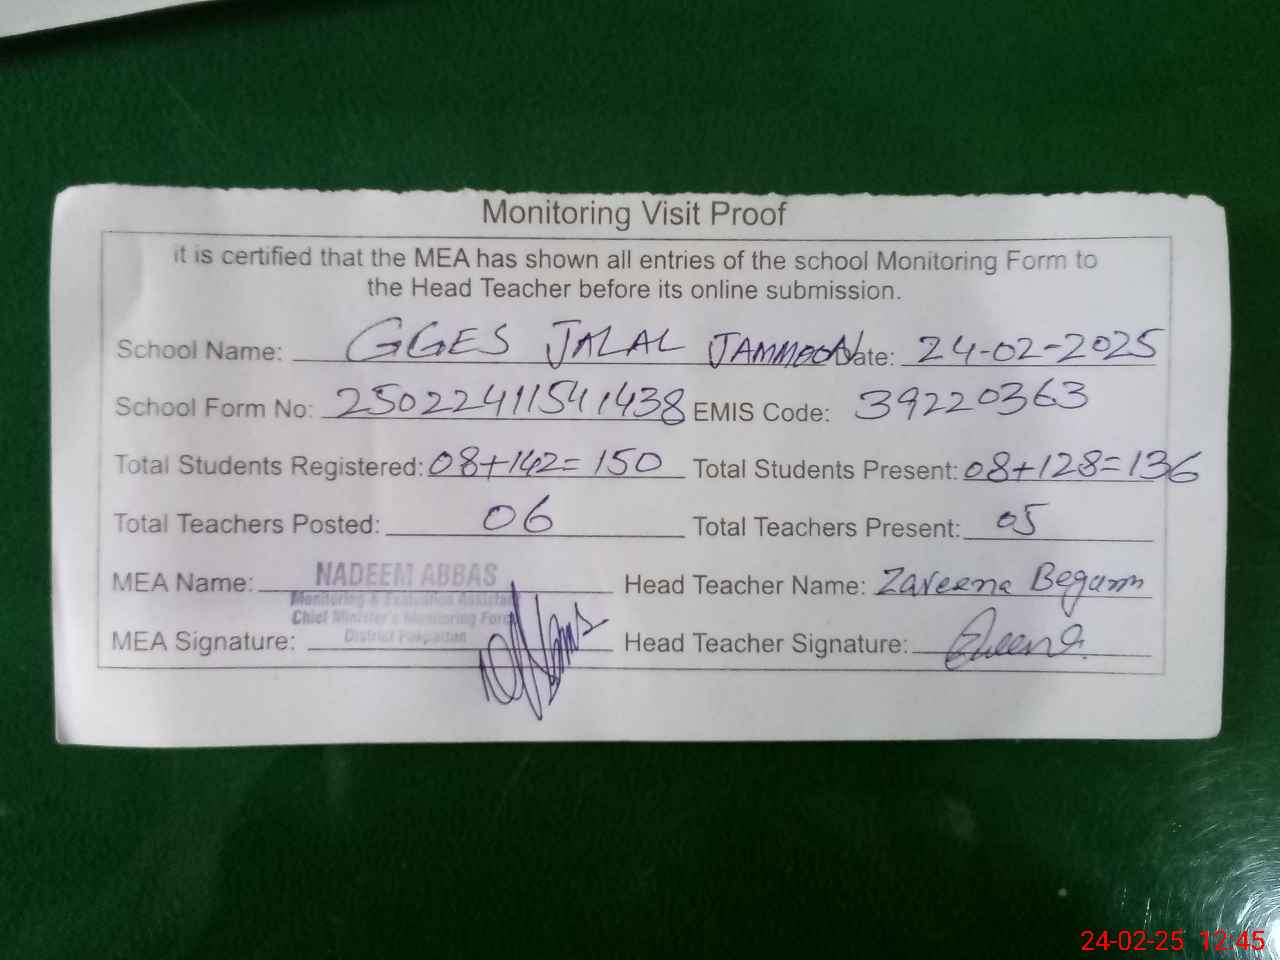 Monitoring Visit Proof
it is certified that the MEA has shown all entries of the school Monitoring Form to
the Head Teacher before its online submission.
School Name: GGES JALAL JAMMOON Date: 24-02-2025
School Form No: 25022411541438 EMIS Code: 39220363
Total Students Registered: 08+142=150 Total Students Present: 08+128=136
Total Teachers Posted: 06 Total Teachers Present: 05
MEA Name: NADEEM ABBAS Head Teacher Name: Zareena Begum
Monitoring & Evaluation Assistant
Chief Minister's Monitoring Force
District Pakpattan
MEA Signature: Head Teacher Signature:
24-02-25 12:45